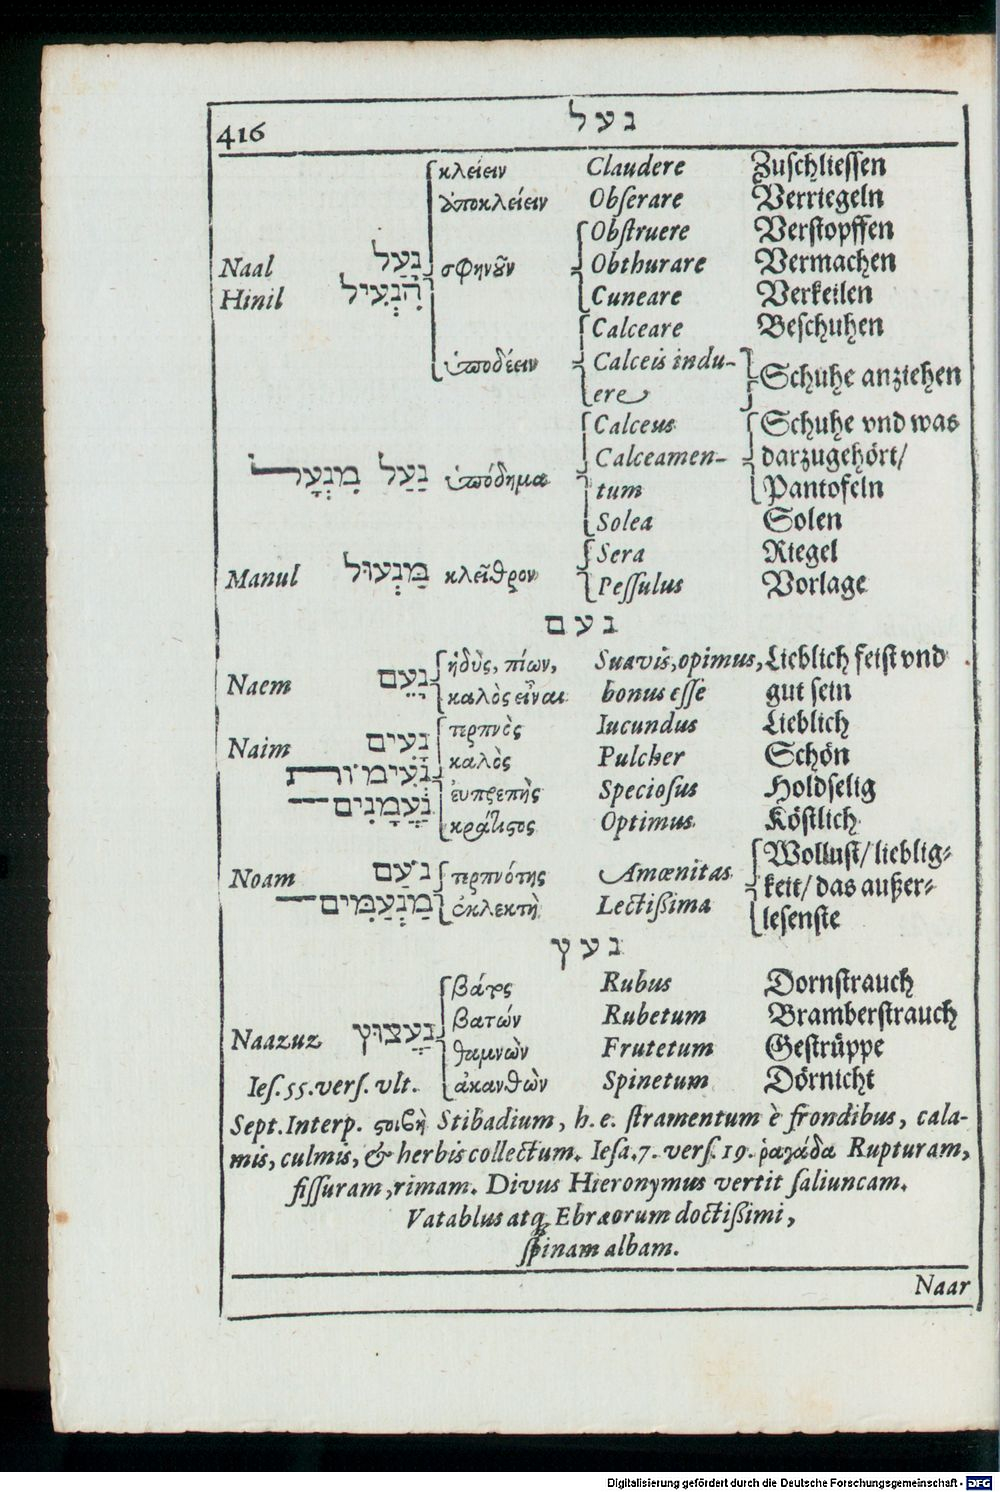 416 נעל
κλείειν Claudere Zuſchlieſſen
ἀποκλείειν Obſerare Verriegeln
Obſtruere Verſtopffen
Naal נָעַל σφηνοῦν Obthurare Vermachen
Hinil הִנְעִיל Cuneare Verkeilen
Calceare Beſchuhen
ὑποδέειν Calceis indu-
ere Schuhe anziehen
Calceus Schuhe vnd was
Calceamen- darzugehört/
נַעַל מִנְעָל ὑπόδημα tum Pantofeln
Solea Solen
Sera Riegel
Manul מַנְעוּל κλεῖθρον Peſſulus Vorlage
נעם
ἡδὺς, πίων, Suavis, opimus, Lieblich feiſt vnd
Naem נָעֵם καλὸς εἶναι bonus eſſe gut ſein
τερπνὸς Iucundus Lieblich
Naim נָעִים καλὸς Pulcher Schön
נְעִימוֹת εὐπρεπὴς Specioſus Holdſelig
נַעֲמָנִים κράτιστος Optimus Köſtlich
Wolluſt/ lieblig⸗
Noam נֹעַם τερπνότης Amœnitas keit/ das außer⸗
מַנְעַמִּים ἐκλεκτὴ Lectißima leſenſte
נעץ
βάτος Rubus Dornſtrauch
βατών Rubetum Bramberſtrauch
Naazuz נַעֲצוּץ θαμνὼν Frutetum Geſtrüppe
Ieſ. 55. verſ. vlt. ἀκανθὼν Spinetum Dörnicht
Sept. Interp. στοιβὴ Stibadium, h. e. ſtramentum è frondibus, cala-
mis, culmis, & herbis collectum. Ieſa. 7. verſ. 19. ῥαγάδα Rupturam,
fiſſuram, rimam. Divus Hieronymus vertit ſaliuncam.
Vatablus atq; Ebræorum doctißimi,
ſpinam albam.
Naar
Digitalisierung gefördert durch die Deutsche Forschungsgemeinschaft - DFG